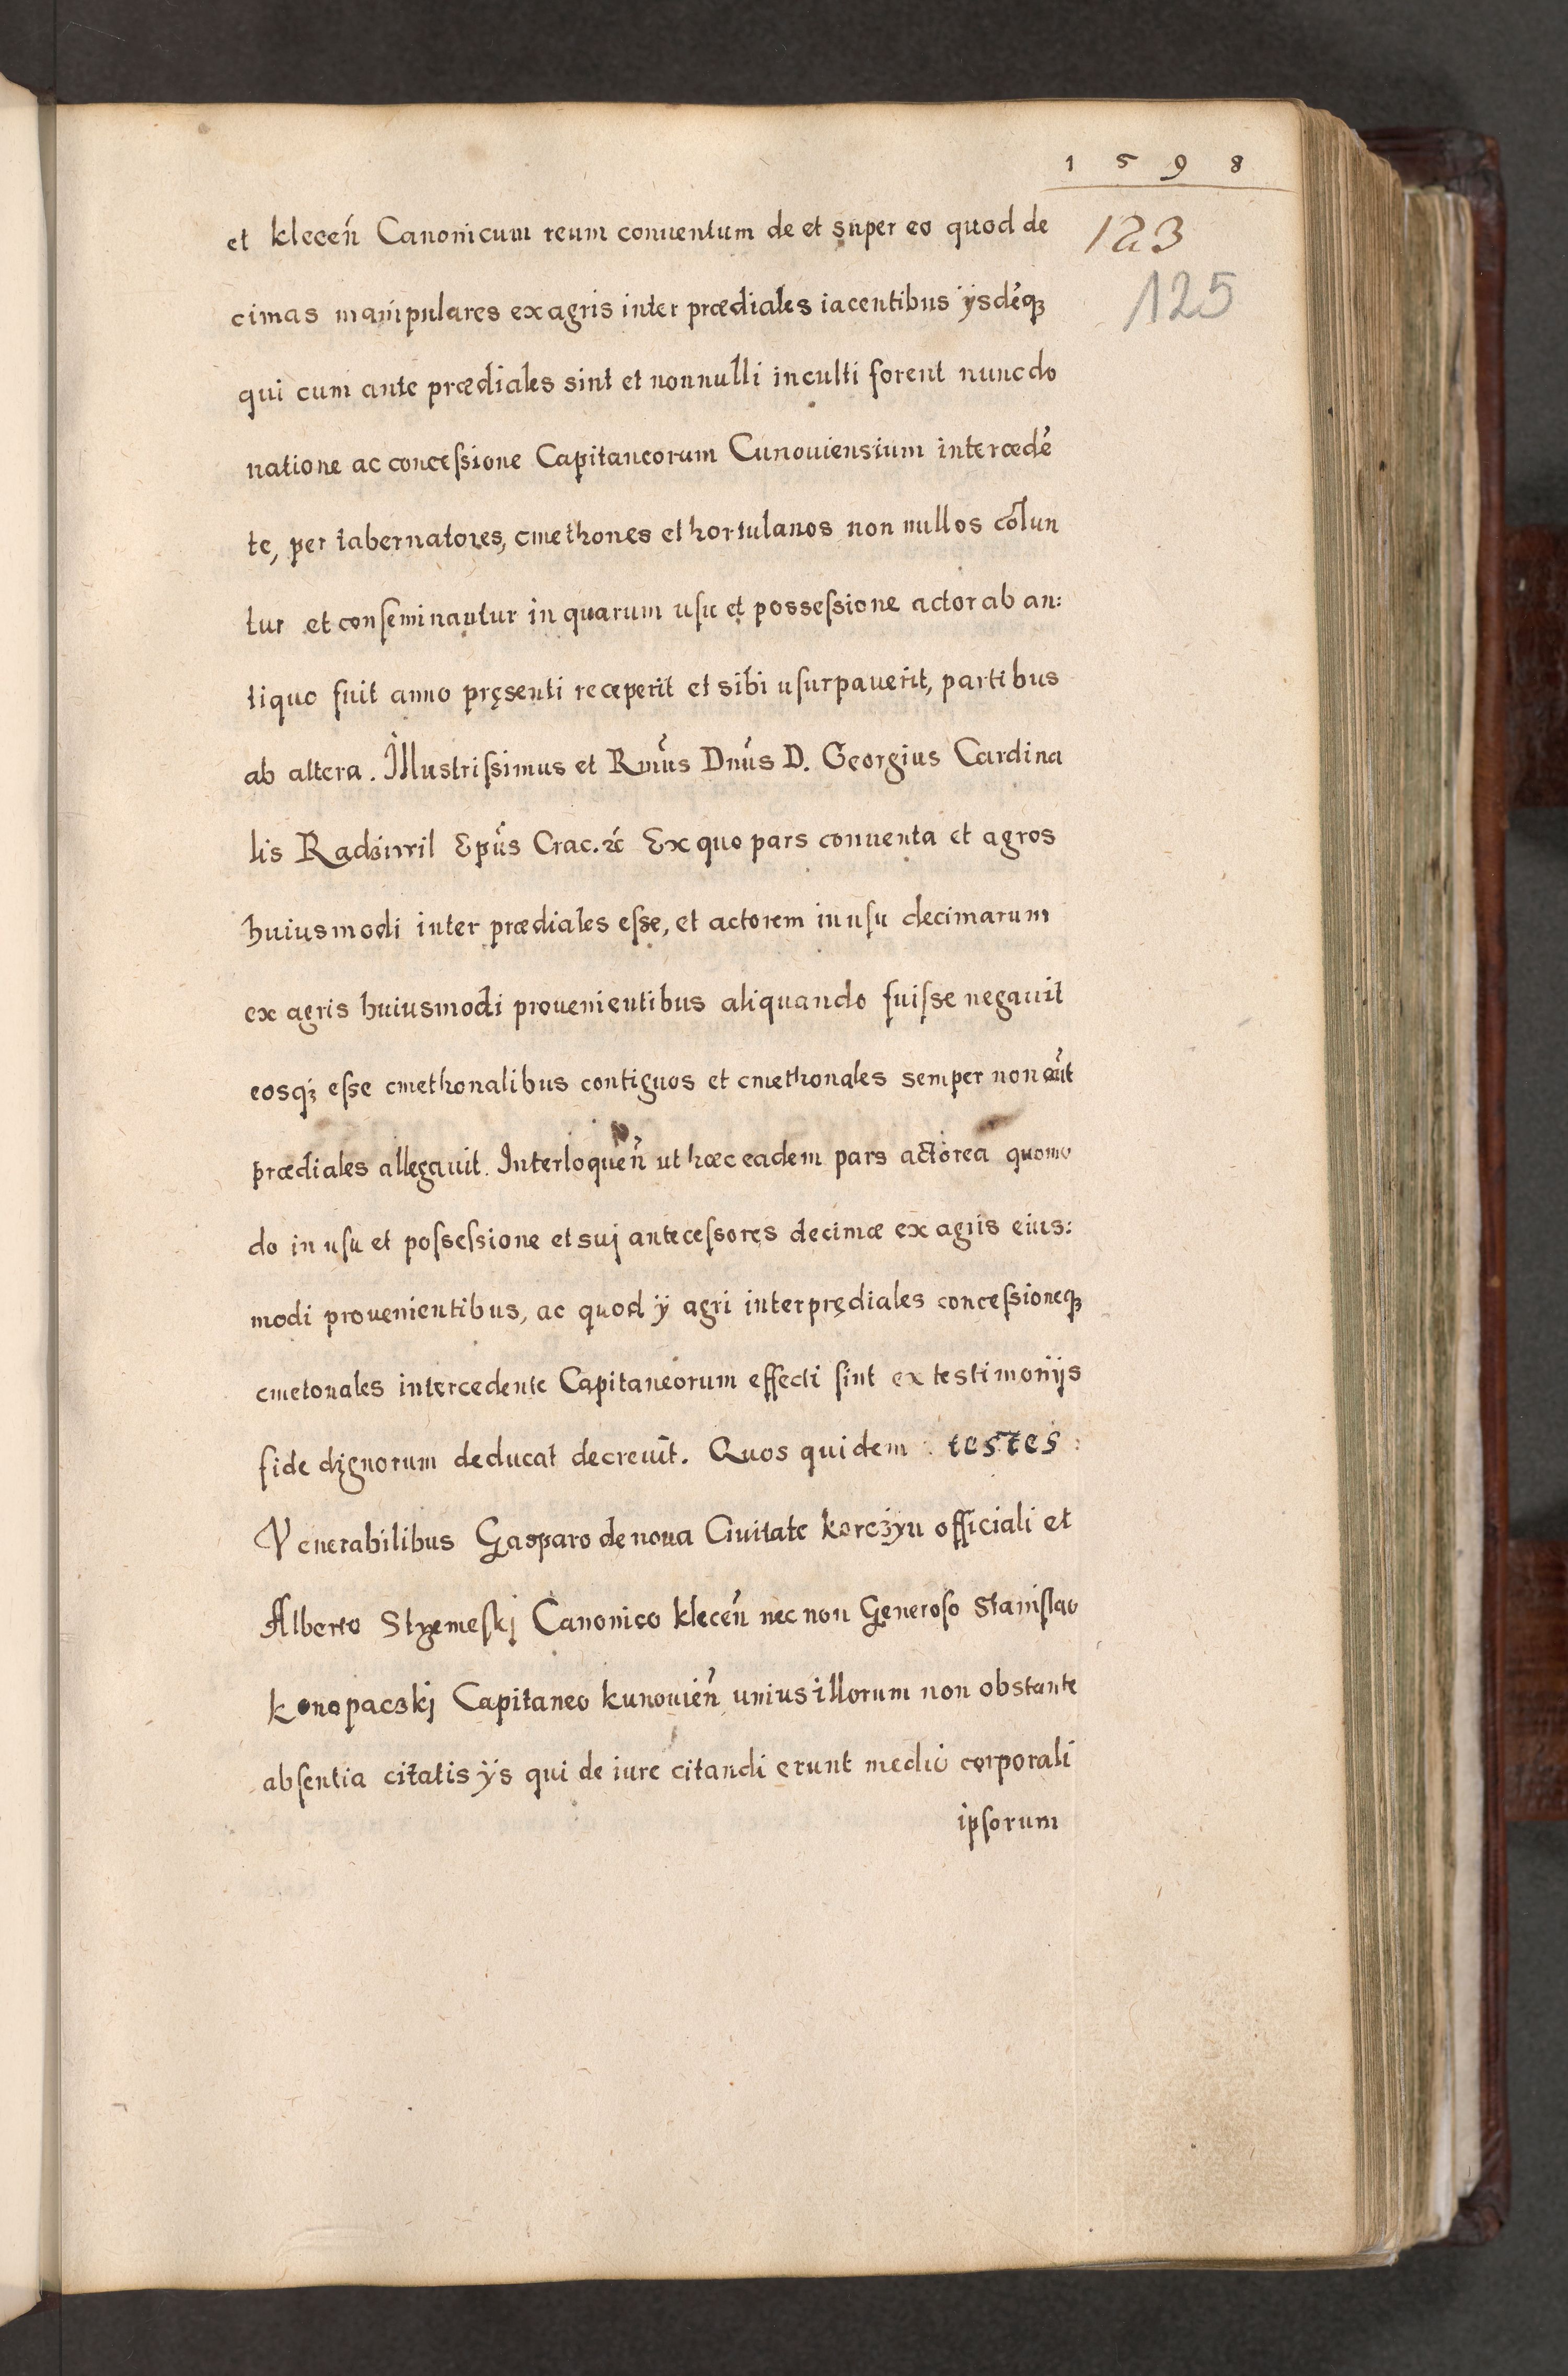 1 5 9 8
123
125
et klecen̄ Canonicum reum conuentum de et super eo quod de
cimas manipulares ex agris inter prædiales iacentibus ÿsdēq₃
qui cum ante prædiales sint et nonnulli inculti forent nunc do
natione ac conceſsione Capitaneorum Cunouiensium intercedē
te, per tabernatores, cmethones et hortulanos non nullos colun
tur et conſeminantur in quarum uſu et posseſsione actor ab an:
tiquo fuit anno pręsenti receperit et sibi uſurpauerit, partibus
ab altera. Illustriſsimus et Rmūs Dnūs D. Georgius Cardina
lis Radziwil Epūs Crac. &c Ex quo pars conuenta et agros
huiusmodi inter prædiales eſse, et actorem in uſu decimarum
ex agris huiusmodi prouenientibus aliquando fuiſse negauit
eosq₃ eſse cmethonalibus contiguos et cmethonales semper non aūt
prædiales allegauit. Interloquen̄ ut hæc eadem pars actorea quomo
do in uſu et poſseſsione et suj anteceſsores decimæ ex agris eius:
modi prouenientibus, ac quod ÿ agri inter prędiales conceſsioneq₃
cmetonales intercedente Capitaneorum effecti ſint ex testimonijs
fide dignorum deducat decreuit. Quos quidem : testes :
Venerabilibus Gasparo de noua Ciuitate korczyn officiali et
Alberto Strzemeſkj Canonico klecen̄ nec non Generoſo Staniſlao
konopaczkj Capitaneo kunouien̄ unius illorum non obstante
abſentia citatis ÿs qui de iure citandi erunt medio corporali
ipſorum